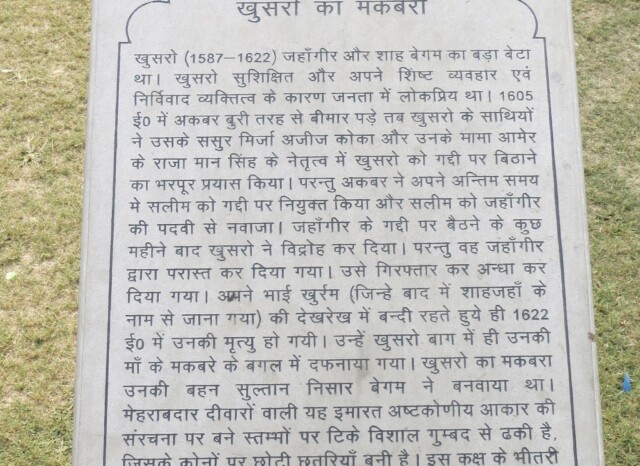 खुसरो का मकबरा
खुसरो (1587–1622) जहाँगीर और शाह बेगम का बड़ा बेटा
था। खुसरो सुशिक्षित और अपने शिष्ट व्यवहार एवं
निर्विवाद व्यक्तित्व के कारण जनता में लोकप्रिय था। 1605
ई0 में अकबर बुरी तरह से बीमार पड़े तब खुसरो के साथियों
ने उसके ससुर मिर्जा अजीज कोका और उनके मामा आमेर
के राजा मान सिंह के नेतृत्व में खुसरो को गद्दी पर बिठाने
का भरपूर प्रयास किया। परन्तु अकबर ने अपने अन्तिम समय
मे सलीम को गद्दी पर नियुक्त किया और सलीम को जहाँगीर
की पदवी से नवाजा। जहाँगीर के गद्दी पर बैठने के कुछ
महीने बाद खुसरो ने विद्रोह कर दिया। परन्तु वह जंहाँगीर
द्वारा परास्त कर दिया गया। उसे गिरफ्तार कर अन्धा कर
दिया गया। अपने भाई खुर्रम (जिन्हे बाद में शाहजहाँ के
नाम से जाना गया) की देखरेख में बन्दी रहते हुये ही 1622
ई0 में उनकी मृत्यु हो गयी। उन्हें खुसरो बाग में ही उनकी
माँ के मकबरे के बगल में दफनाया गया। खुसरो का मकबरा
उनकी बहन सुल्तान निसार बेगम ने बनवाया था।
मेहराबदार दीवारों वाली यह इमारत अष्टकोणीय आकार की
संरचना पर बने स्तम्भों पर टिके विशाल गुम्बद से ढकी है,
जिसके कोनों पर छोटी छतरियाँ बनी है। इस कक्ष के भीतरी